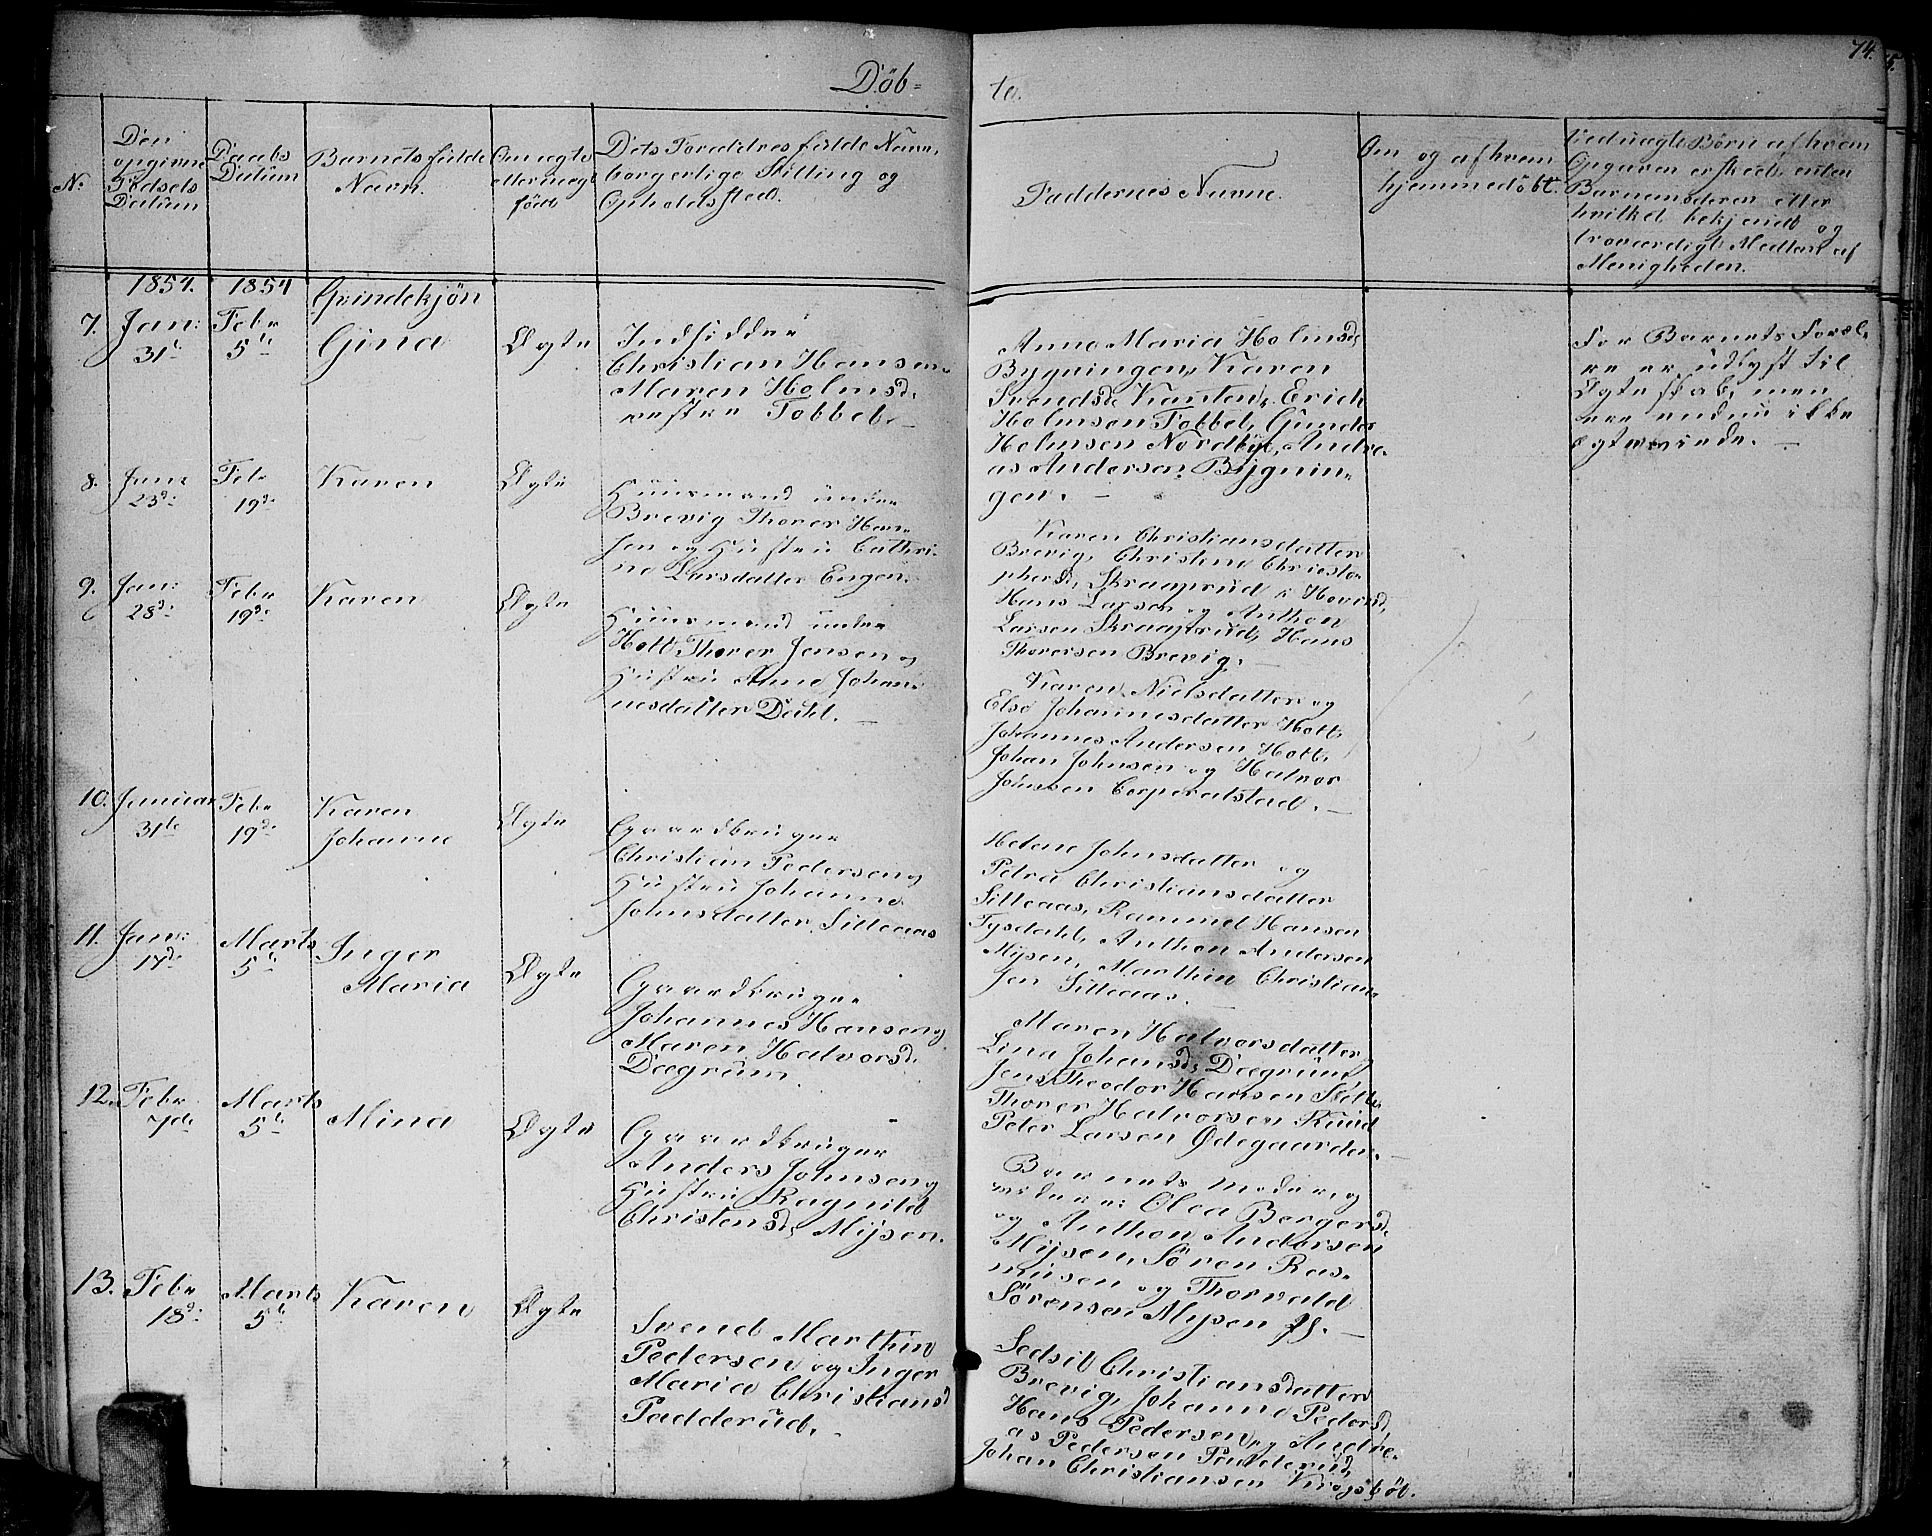 Döb=
te.
74.
5.
No
Den
opgivne
Födsels
Datum
Daabs
Datum
Barnets fulde
Navn.
Om ægte
eller uægte
födt
Dets Foreldres fulde Navn,
borgerlige Stilling og
Opholdssted.
Faddernes Navne.
Om og af hvem
hjemmedöbt.
Ved uægte Børn af hvem
Opgaven er skeet, enten
Barnemoderen eller
hvilket bekjendt og
troværdigt Medlem af
Menigheden.
1854.
1854
Qvindekjön
7. Jan:
31te
Febr
5te
Gina
Ægte
Indsidder
Christian Hansen
Maren Holmsd.
vestre Tobbel. –
Anne Maria Holmsd,
Bygningen, Karen
Svendsd, Kanten, Erich
Holmsen Tobbel, Gunder
Holmsen Nordbye, Andre-
as Andersen Bygnin-
gen. –
For Barnets Foræl-
re er udlyst til
Ægteskab, men
ere endnu ikke
ægteviede. –
8. Jan:
23d:
Feb.
19d:
Karen
Ægte
Huusmand under
Brevig Thorer Han-
sen og Hustru Cathri-
ne Larsdatter Engen.
Karen Christiansdatter
Brevig, Christene Christo-
phersd, Skraaprud i Hovind,
Hans Larsen og Anthon
Larsen Skraaprud, Hans
Thorersen Brevig. –
9. Jan:
28d:
Febr
19d:
Karen
Ægte
Huusmand under
Holt Thorer Jensen og
Hustru Anne Johan-
nesdatter Dahl. –
Karen Nielsdatter og
Else Johannesdatter Holt,
Johannes Andersen Holt,
Johan Johnsen og Halvor
Johnsen Corporalstad. –
10. Januar
31te
Febr
19d:
Karen
Johanne
Ægte
Gaardbruger
Christian Pedersen og
Hustru Johanne
Johnsdatter Sitteaas
Helene Johnsdatter og
Petra Christiansdatter
Sitteaas, Rammel Hansen
Tysdahl, Anthon Andersen
Mysen, Marthin Christian-
sen Sitteaas. –
11. Jan:
17d:
Marts
5te
Inger
Maria
Ægte
Gaardbruger
Johannes Hansen og
Maren Halvorsd.
Dægrum.
Maren Halvorsdatter,
Lina Johansd, Dægrum
Jens Theodor Hansen
Thorer Halvorsen Ruud
Peter Larsen Ødegaarden. –
12. Febr.
7de
Marts
5te
Mina
Ægte
Gaardbruger
Anders Johnsen og
Hustru Ragnild
Christensd, Mysen.
Barnets Moder og
videre: Olea Bergersd.
og Anthon Andersen
Mysen, Sören Ras-
musen og Thorvald
Sörensen Mysen
13. Febr
18d:
Marts
5te
Karen
Ægte
Svend Marthin
Pedersen og Inger
Maria Christiansd
Padderud. –
Sedsil Christiansdatter
Brevig, Johanne Pedersd
Hans Pedersen og Andre-
as Pedersen Padderud,
Johan Christiansen Krogsböl.